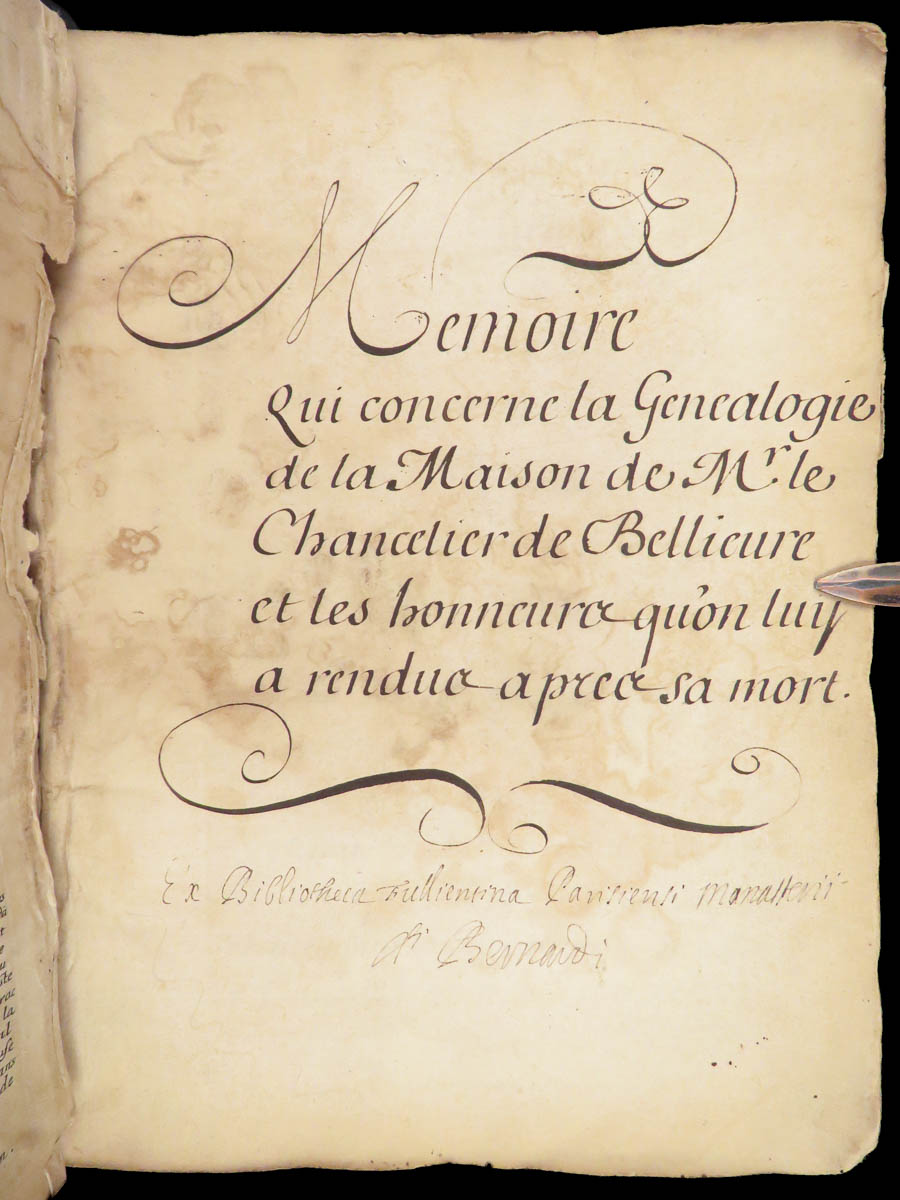 Memoire
Qui concerne la Genealogie
de la Maison de Mr. le
Chancelier de Bellieure
et les honneurs qu'on luy
a rendus apres sa mort.
Ex Bibliotheca Fullientina Parisiensi Monasterii
sti Bernardi
la
de